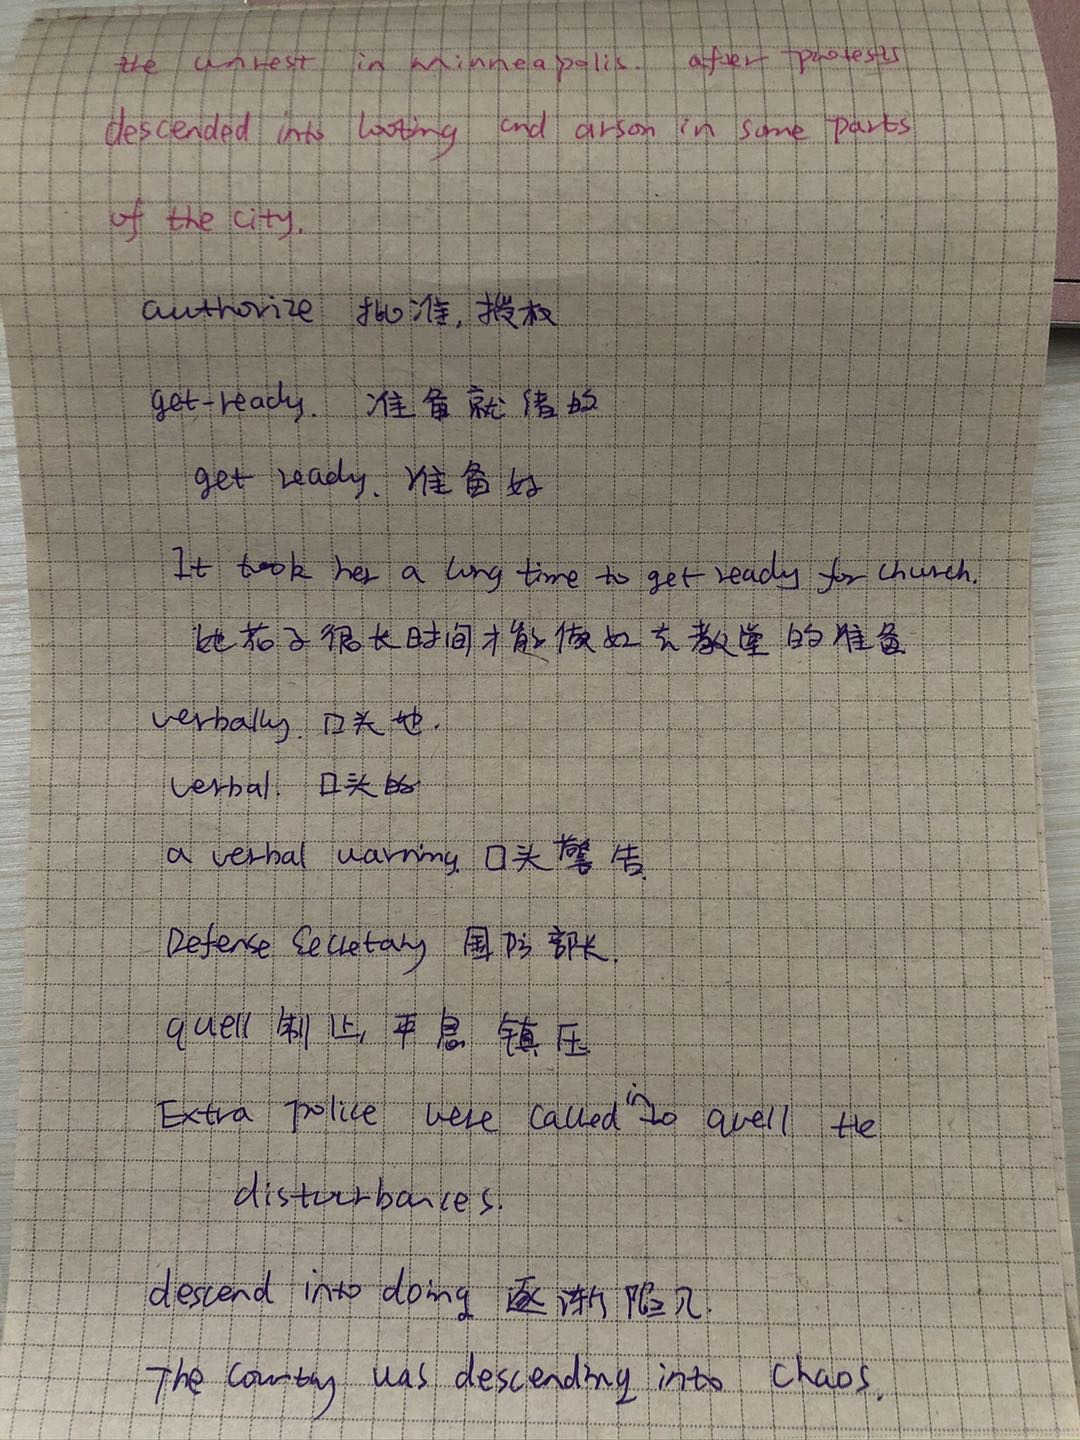 the unrest in Minneapolis. after protests
descended into looting and arson in some parts
of the city.
authorize 批准, 授权
get-ready. 准备就绪的
get ready. 准备好
It took her a long time to get ready for church.
她花了很长时间才能做好去教堂的准备
verbally. 口头地.
verbal. 口头的
a verbal warning. 口头警告.
Defense Secretary 国防部长.
quell 制止, 平息 镇压
Extra police were called in to quell the
disturbances.
descend into doing 逐渐陷入.
The country was descending into chaos.